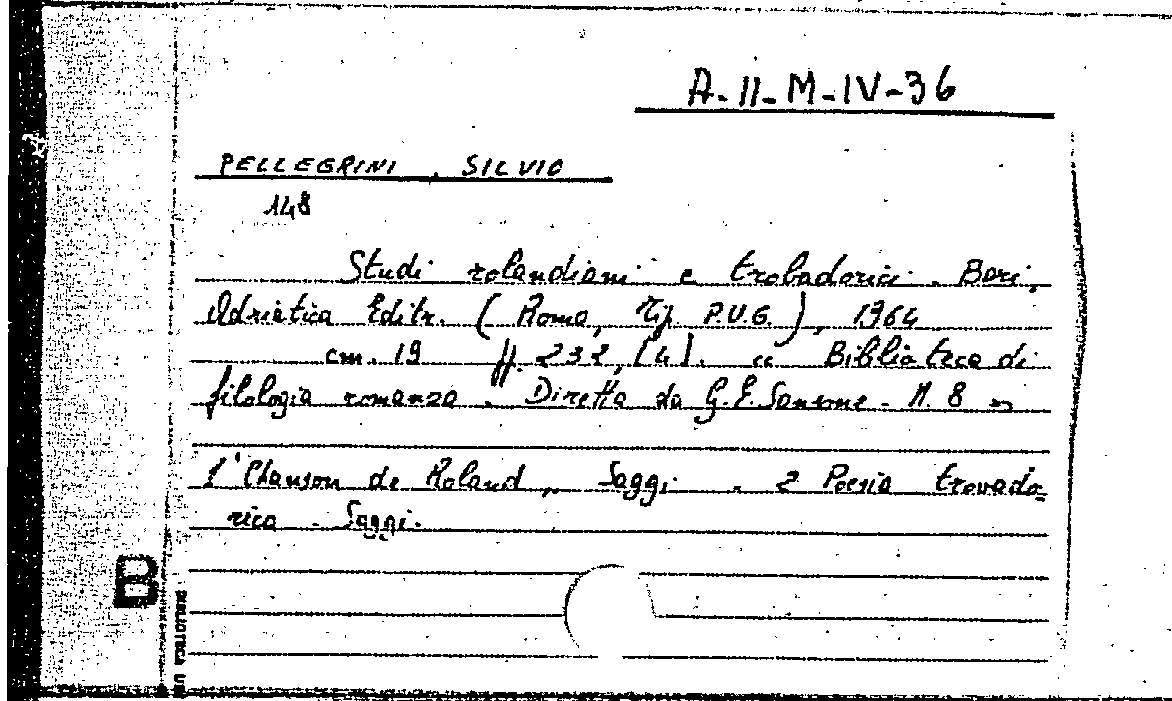 A-II-M-IV-36
PELLEGRINI, SILVIO
148
Studi rolandiani e trobadorici. Bari,
Adriatica Editr. (Roma, Tip. P.U.G.), 1964
cm. 19 pp. 232, [4]. « Biblioteca di
filologia romanza. Diretta da G.E. Sansone - N. 8 »
1 Chanson de Roland, Saggi. 2 Poesia trovado=
rica. Saggi.
B
BIBLIOTECA